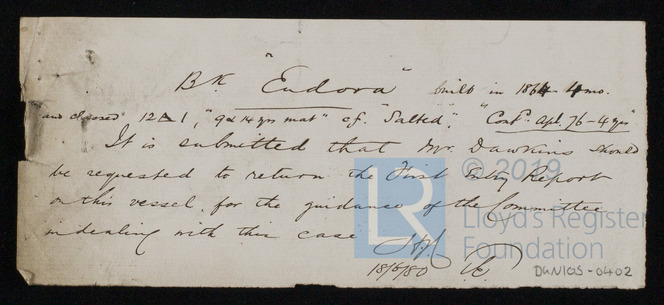 Bk "Eudora" built in 1864 4mo.
and classed 12A1, "9 & 14 yrs mat" cf. "Salted", "Contd. apl. 76 - 4 yrs"
It is submitted that Mr. Dawkins should
be requested to return the First Entry Report
on this vessel, for the guidance of the Committee
in dealing with this case
18/5/80
© 2019
LR
Lloyd's Register
Foundation
DUN105-0402